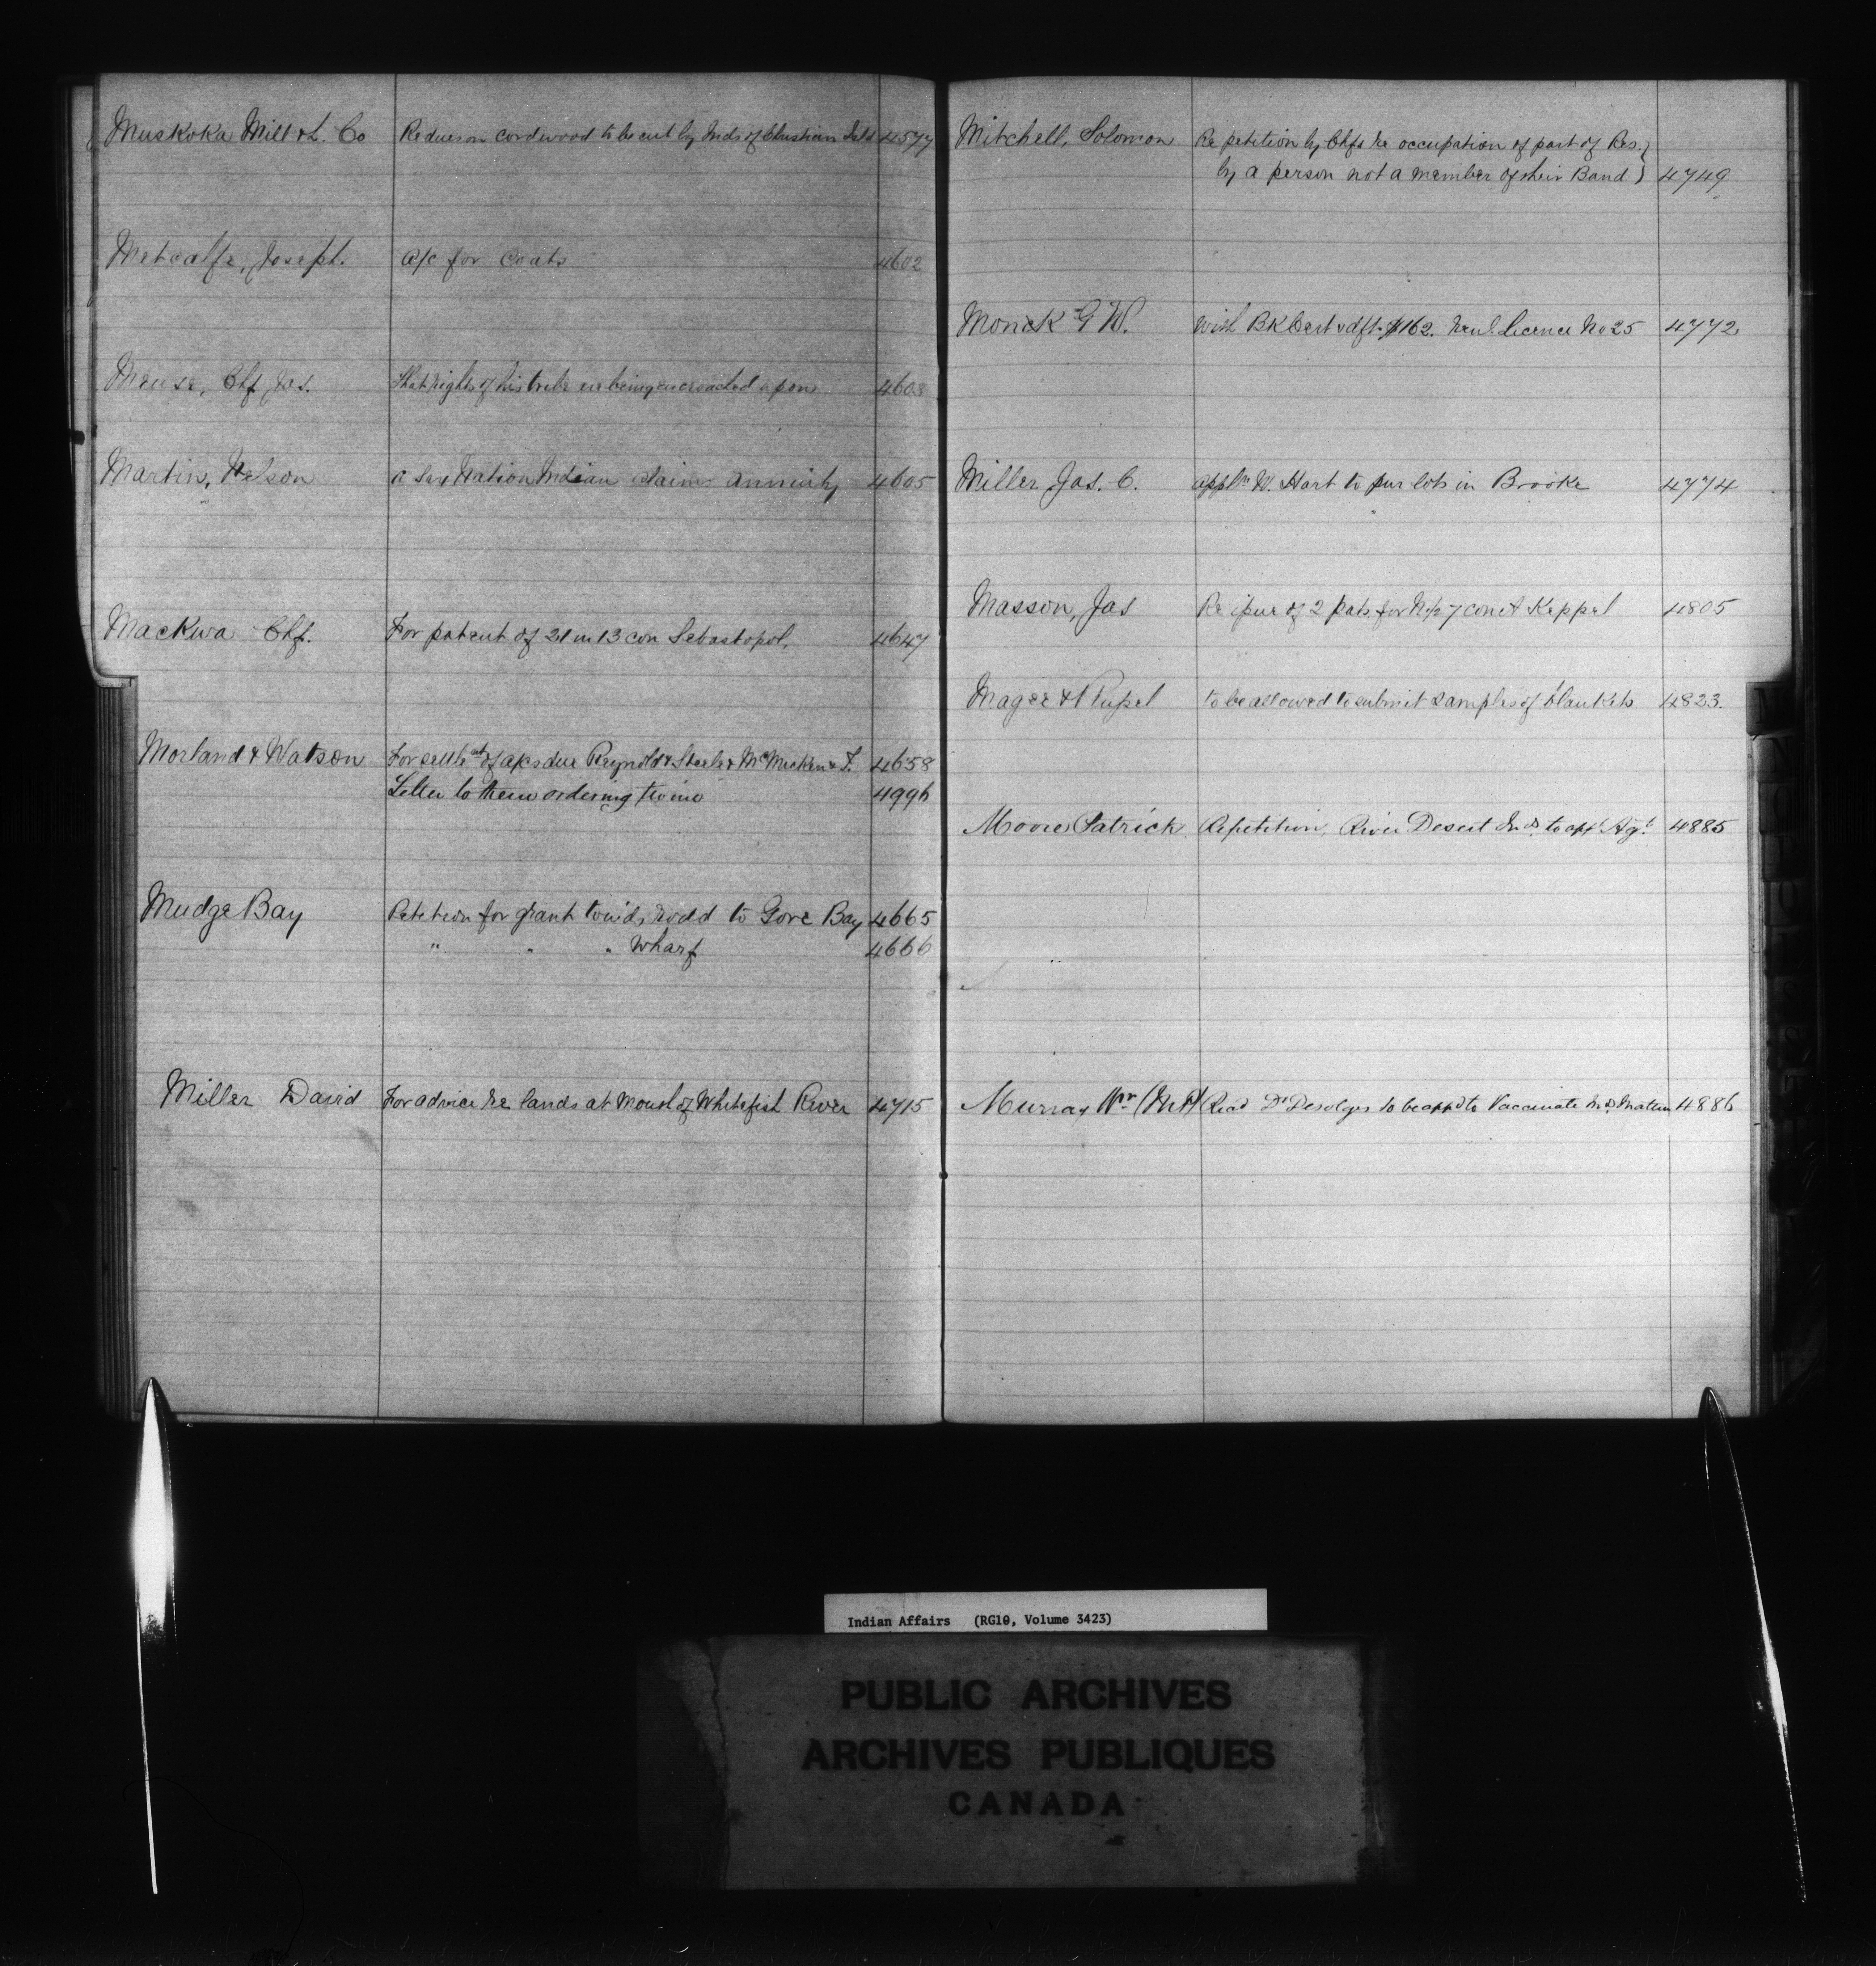 Muskoka Mill & L. Co Re dues on cordwood to be cut by Inds of Christian Isld 4577
Metcalfe, Joseph. a/c for Coats 4602
Meuse, Chf Jas. That rights of his tribe are being encroached upon 4603
Martin, Nelson a Six Nation Indian claims annuity 4605
Mackwa Chf. For patent of 21 in 13 con Sebastopol. 4647
Morland & Watson For settlmt of a/cs due Reynolds Steele & McMicken & T. 4658
Letter to them ordering twine 4996
Mudge Bay Petition for grant tow'ds road to Gore Bay 4665
" " " Wharf 4666
Miller David For advice re lands at Mouth of Whitefish River 4715
Mitchell, Solomon Re petition by Chfs re occupation of part of Res. }
by a person not a member of their Band } 4749
Monck G W. with Bk Cert & dft. $162. Renl. licence No 25 4772
Miller Jas. C. appln W. Hart to pur lots in Brooke 4774
Masson, Jas Re ipue of 2 pats. for N. 1/2 7 con A Keppel 4805
Magee & to be allowed to submit samples of blankets 4823.
Moore Patrick Re petition, River Desert Inds to appt Agt. 4885
Murray Wm (M.P) Recd Dr to be appd to Vaccinate Inds 4886
Indian Affairs (RG10, Volume 3423)
PUBLIC ARCHIVES
ARCHIVES PUBLIQUES
CANADA